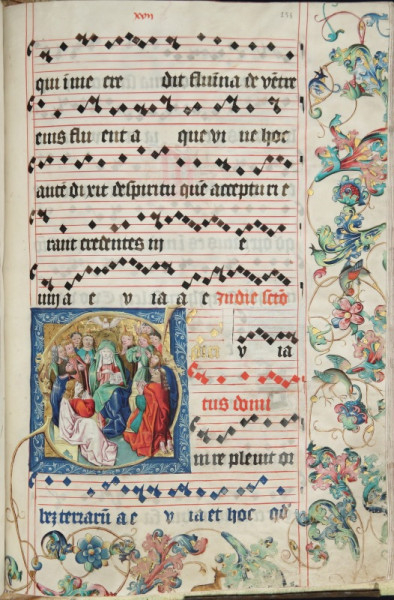 xvii
qui i me cre dit flumina de ventre
eius flu ent a que vi ue hoc
autē di xit de spiritu quē accepturi e
rant credentes in e
um a e v ia a e In die sctō
S v ia
tus domi
ni re pleuit or
bez terrarū a e v ia et hoc qd